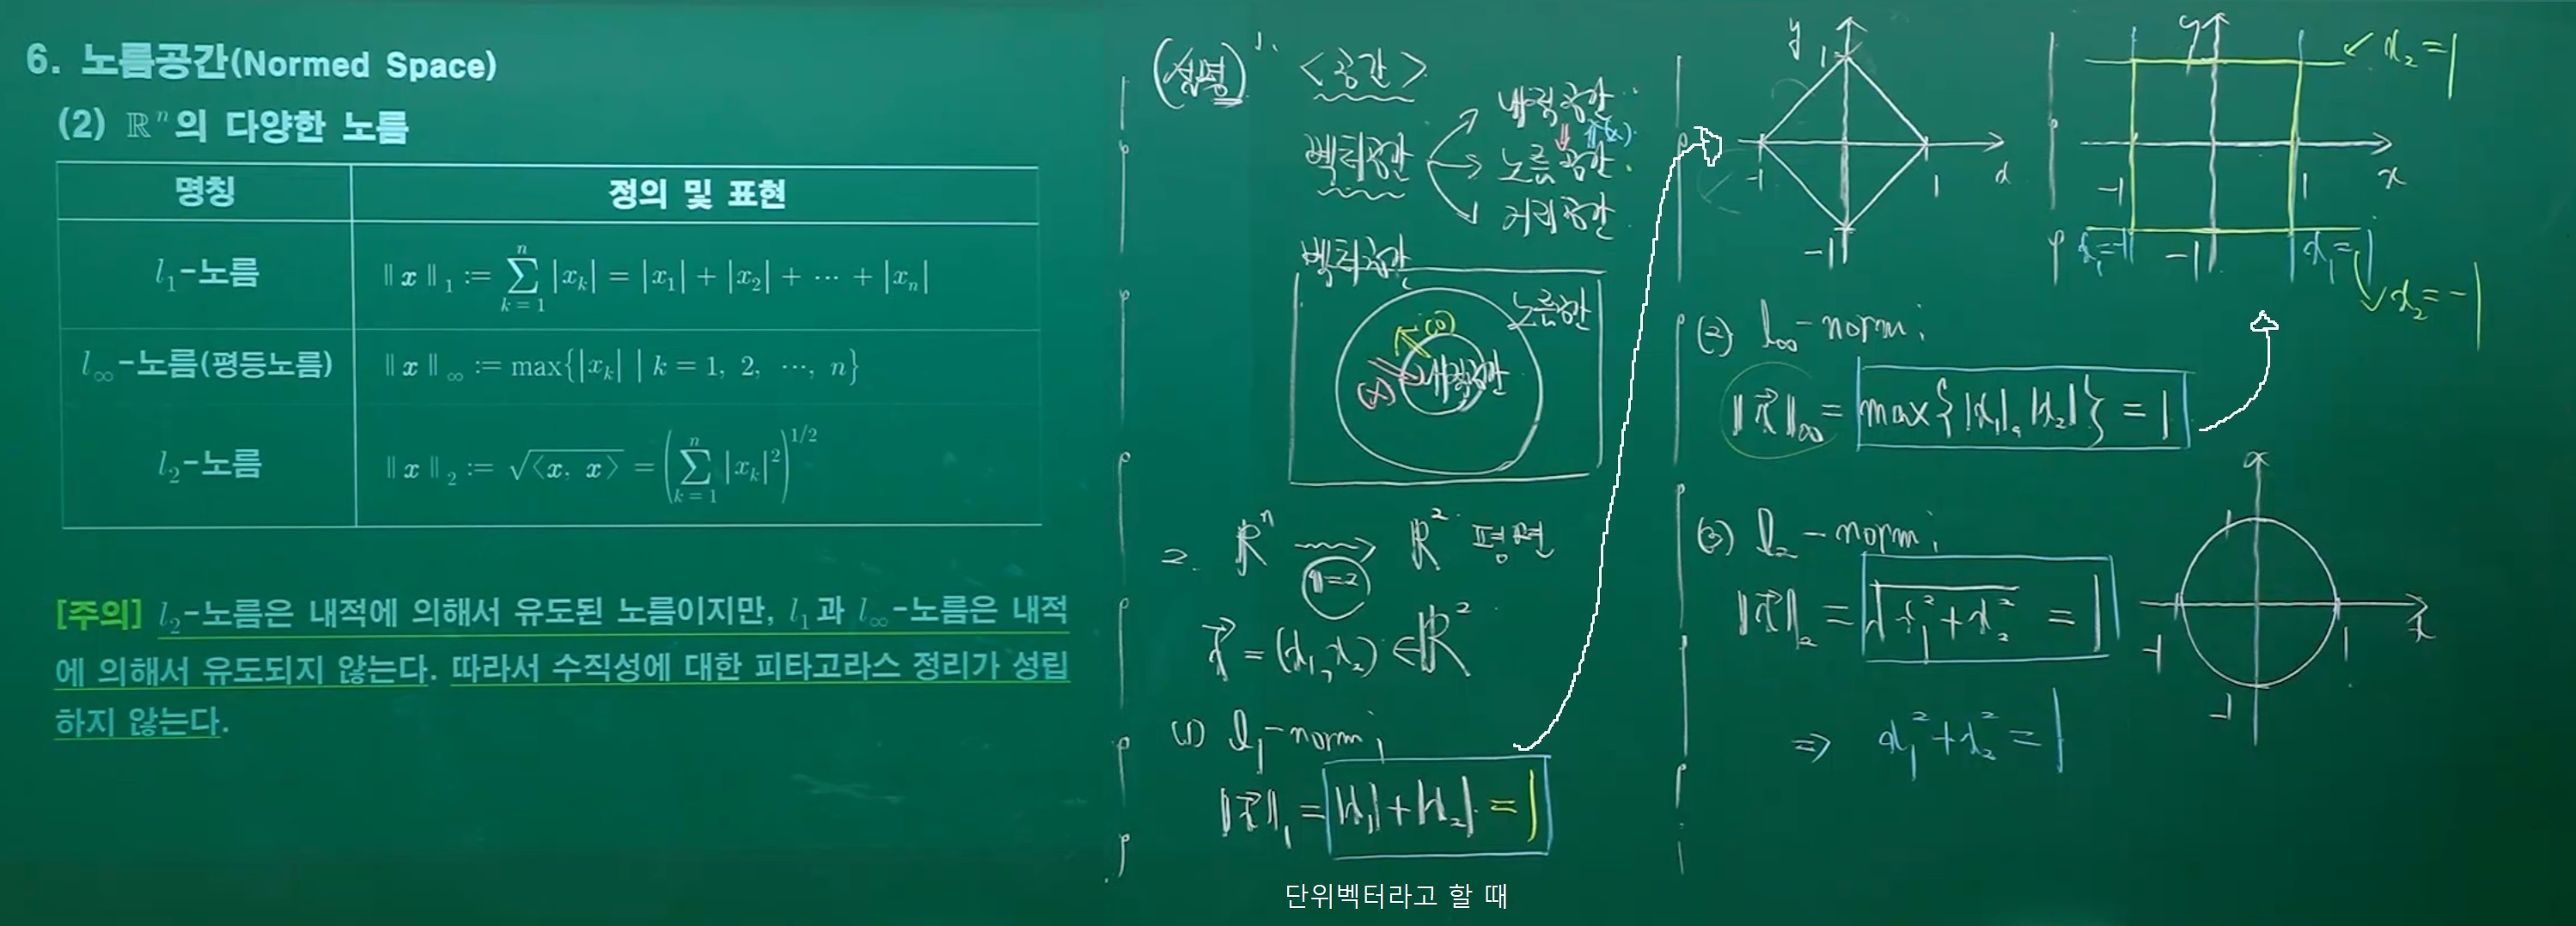 6. 노름공간(Normed Space)
(2) ℝⁿ의 다양한 노름
명칭 정의 및 표현
l₁-노름 ‖x‖₁ := ∑_{k=1}^{n} |x_k| = |x₁| + |x₂| + ⋯ + |x_n|
l_∞-노름(평등노름) ‖x‖_∞ := max{|x_k| | k = 1, 2, ⋯, n}
l₂-노름 ‖x‖₂ := √⟨x, x⟩ = (∑_{k=1}^{n} |x_k|²)^{1/2}
[주의] l₂-노름은 내적에 의해서 유도된 노름이지만, l₁과 l_∞-노름은 내적
에 의해서 유도되지 않는다. 따라서 수직성에 대한 피타고라스 정리가 성립
하지 않는다.
(설명) 1. <공간>
벡터공간
내적공간
(x)
노름공간
거리공간
벡터공간
노름공간
(o)
(x)
내적공간
2. ℝⁿ → ℝ² 평면
n=2
x⃗ = (x₁, x₂) ∈ ℝ²
(1) l₁-norm;
‖x⃗‖₁ = |x₁| + |x₂| = 1
단위벡터라고 할 때
y
1
-1 1 x
-1
y
x₂ = 1
-1 1 x
x₁ = -1 -1 x₁ = 1
x₂ = -1
(2) l_∞-norm;
‖x⃗‖_∞ = max{|x₁|, |x₂|} = 1
(3) l₂-norm;
‖x⃗‖₂ = √(x₁² + x₂²) = 1
⇒ x₁² + x₂² = 1
1
-1 1 x
-1